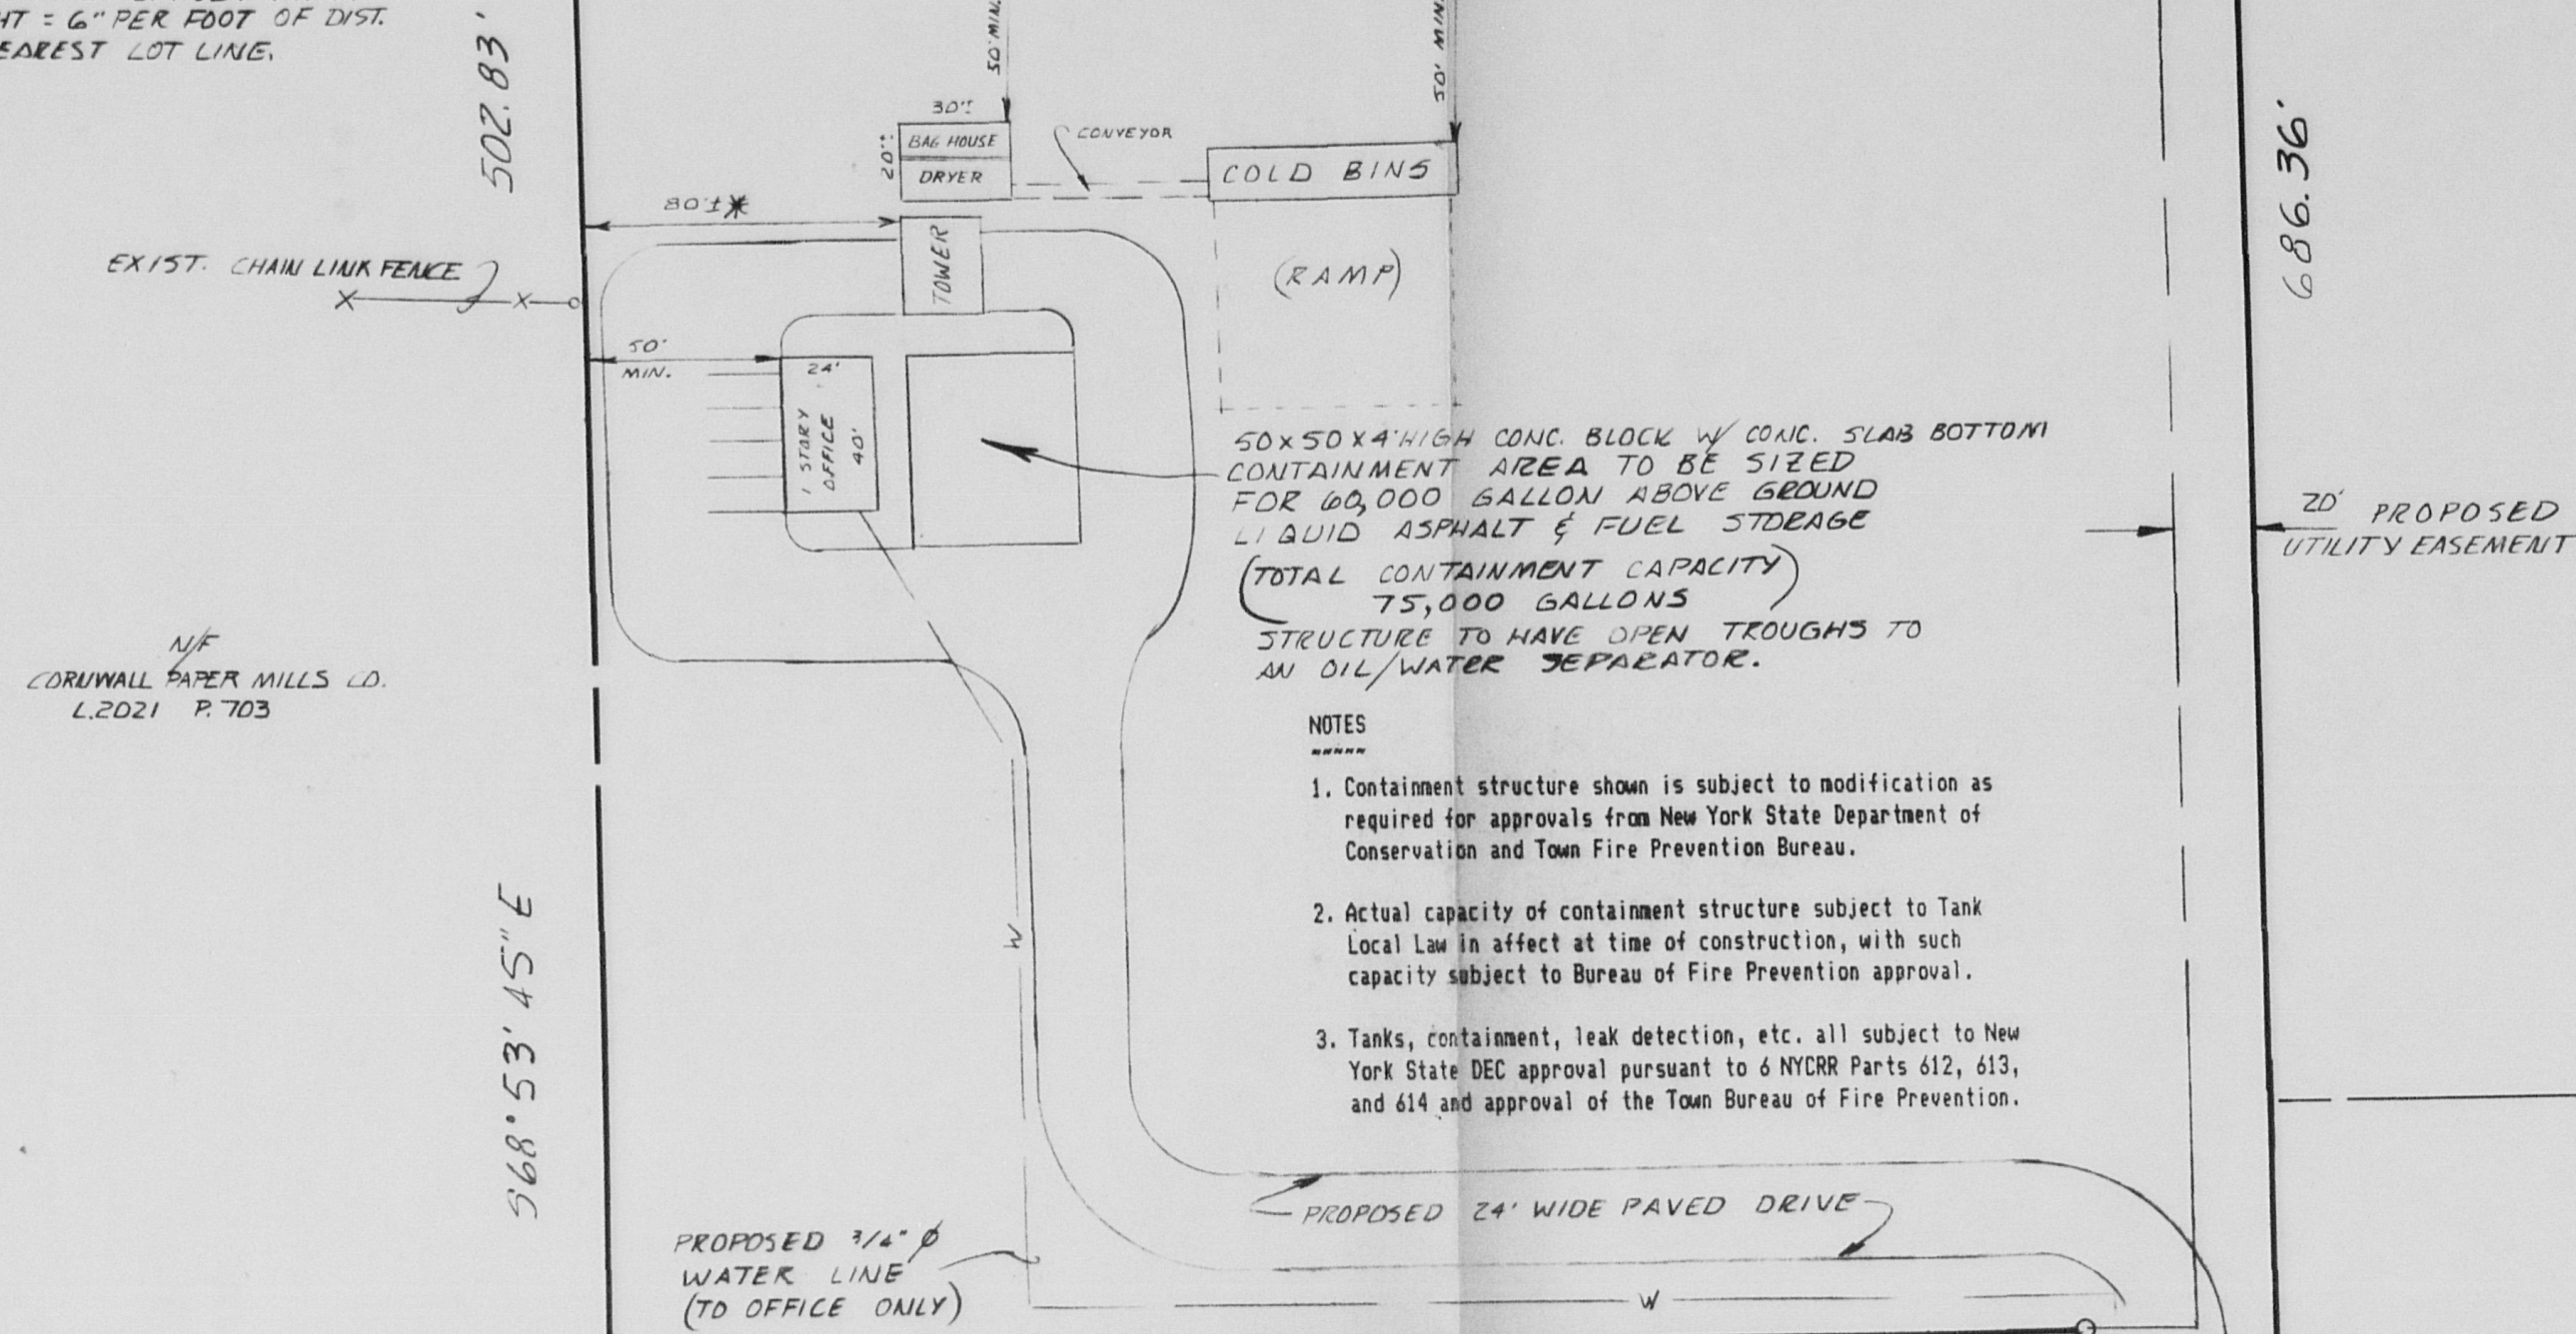 HT = 6" PER FOOT OF DIST.
EAREST LOT LINE.
502.83'
50' MIN.
50' MIN.
30'±
20'±
BAG HOUSE
DRYER
CONVEYOR
COLD BINS
686.36'
80'±*
TOWER
(RAMP)
EXIST. CHAIN LINK FENCE
X X
50'
MIN.
24'
1 STORY
OFFICE
40'
50 x 50 x 4' HIGH CONC. BLOCK W/ CONC. SLAB BOTTOM
CONTAINMENT AREA TO BE SIZED
FOR 60,000 GALLON ABOVE GROUND
LIQUID ASPHALT & FUEL STORAGE
(TOTAL CONTAINMENT CAPACITY)
75,000 GALLONS
STRUCTURE TO HAVE OPEN TROUGHS TO
AN OIL/WATER SEPARATOR.
20' PROPOSED
UTILITY EASEMENT
N/F
CORNWALL PAPER MILLS CO.
L.2021 P. 703
NOTES
1. Containment structure shown is subject to modification as
required for approvals from New York State Department of
Conservation and Town Fire Prevention Bureau.
2. Actual capacity of containment structure subject to Tank
Local Law in affect at time of construction, with such
capacity subject to Bureau of Fire Prevention approval.
3. Tanks, containment, leak detection, etc. all subject to New
York State DEC approval pursuant to 6 NYCRR Parts 612, 613,
and 614 and approval of the Town Bureau of Fire Prevention.
S68° 53' 45" E
W
PROPOSED 24' WIDE PAVED DRIVE
PROPOSED 3/4" ϕ
WATER LINE
(TO OFFICE ONLY)
W